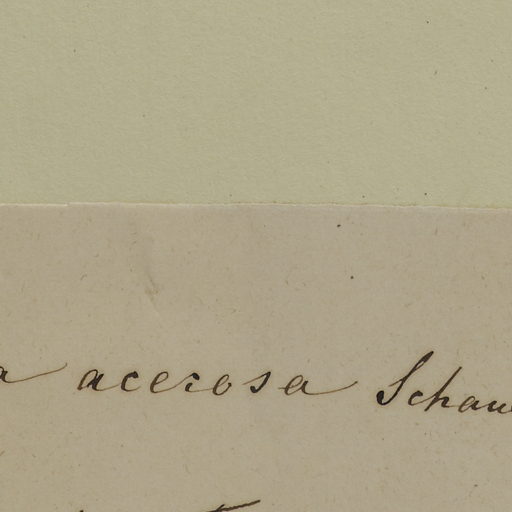 a acerosa Schau